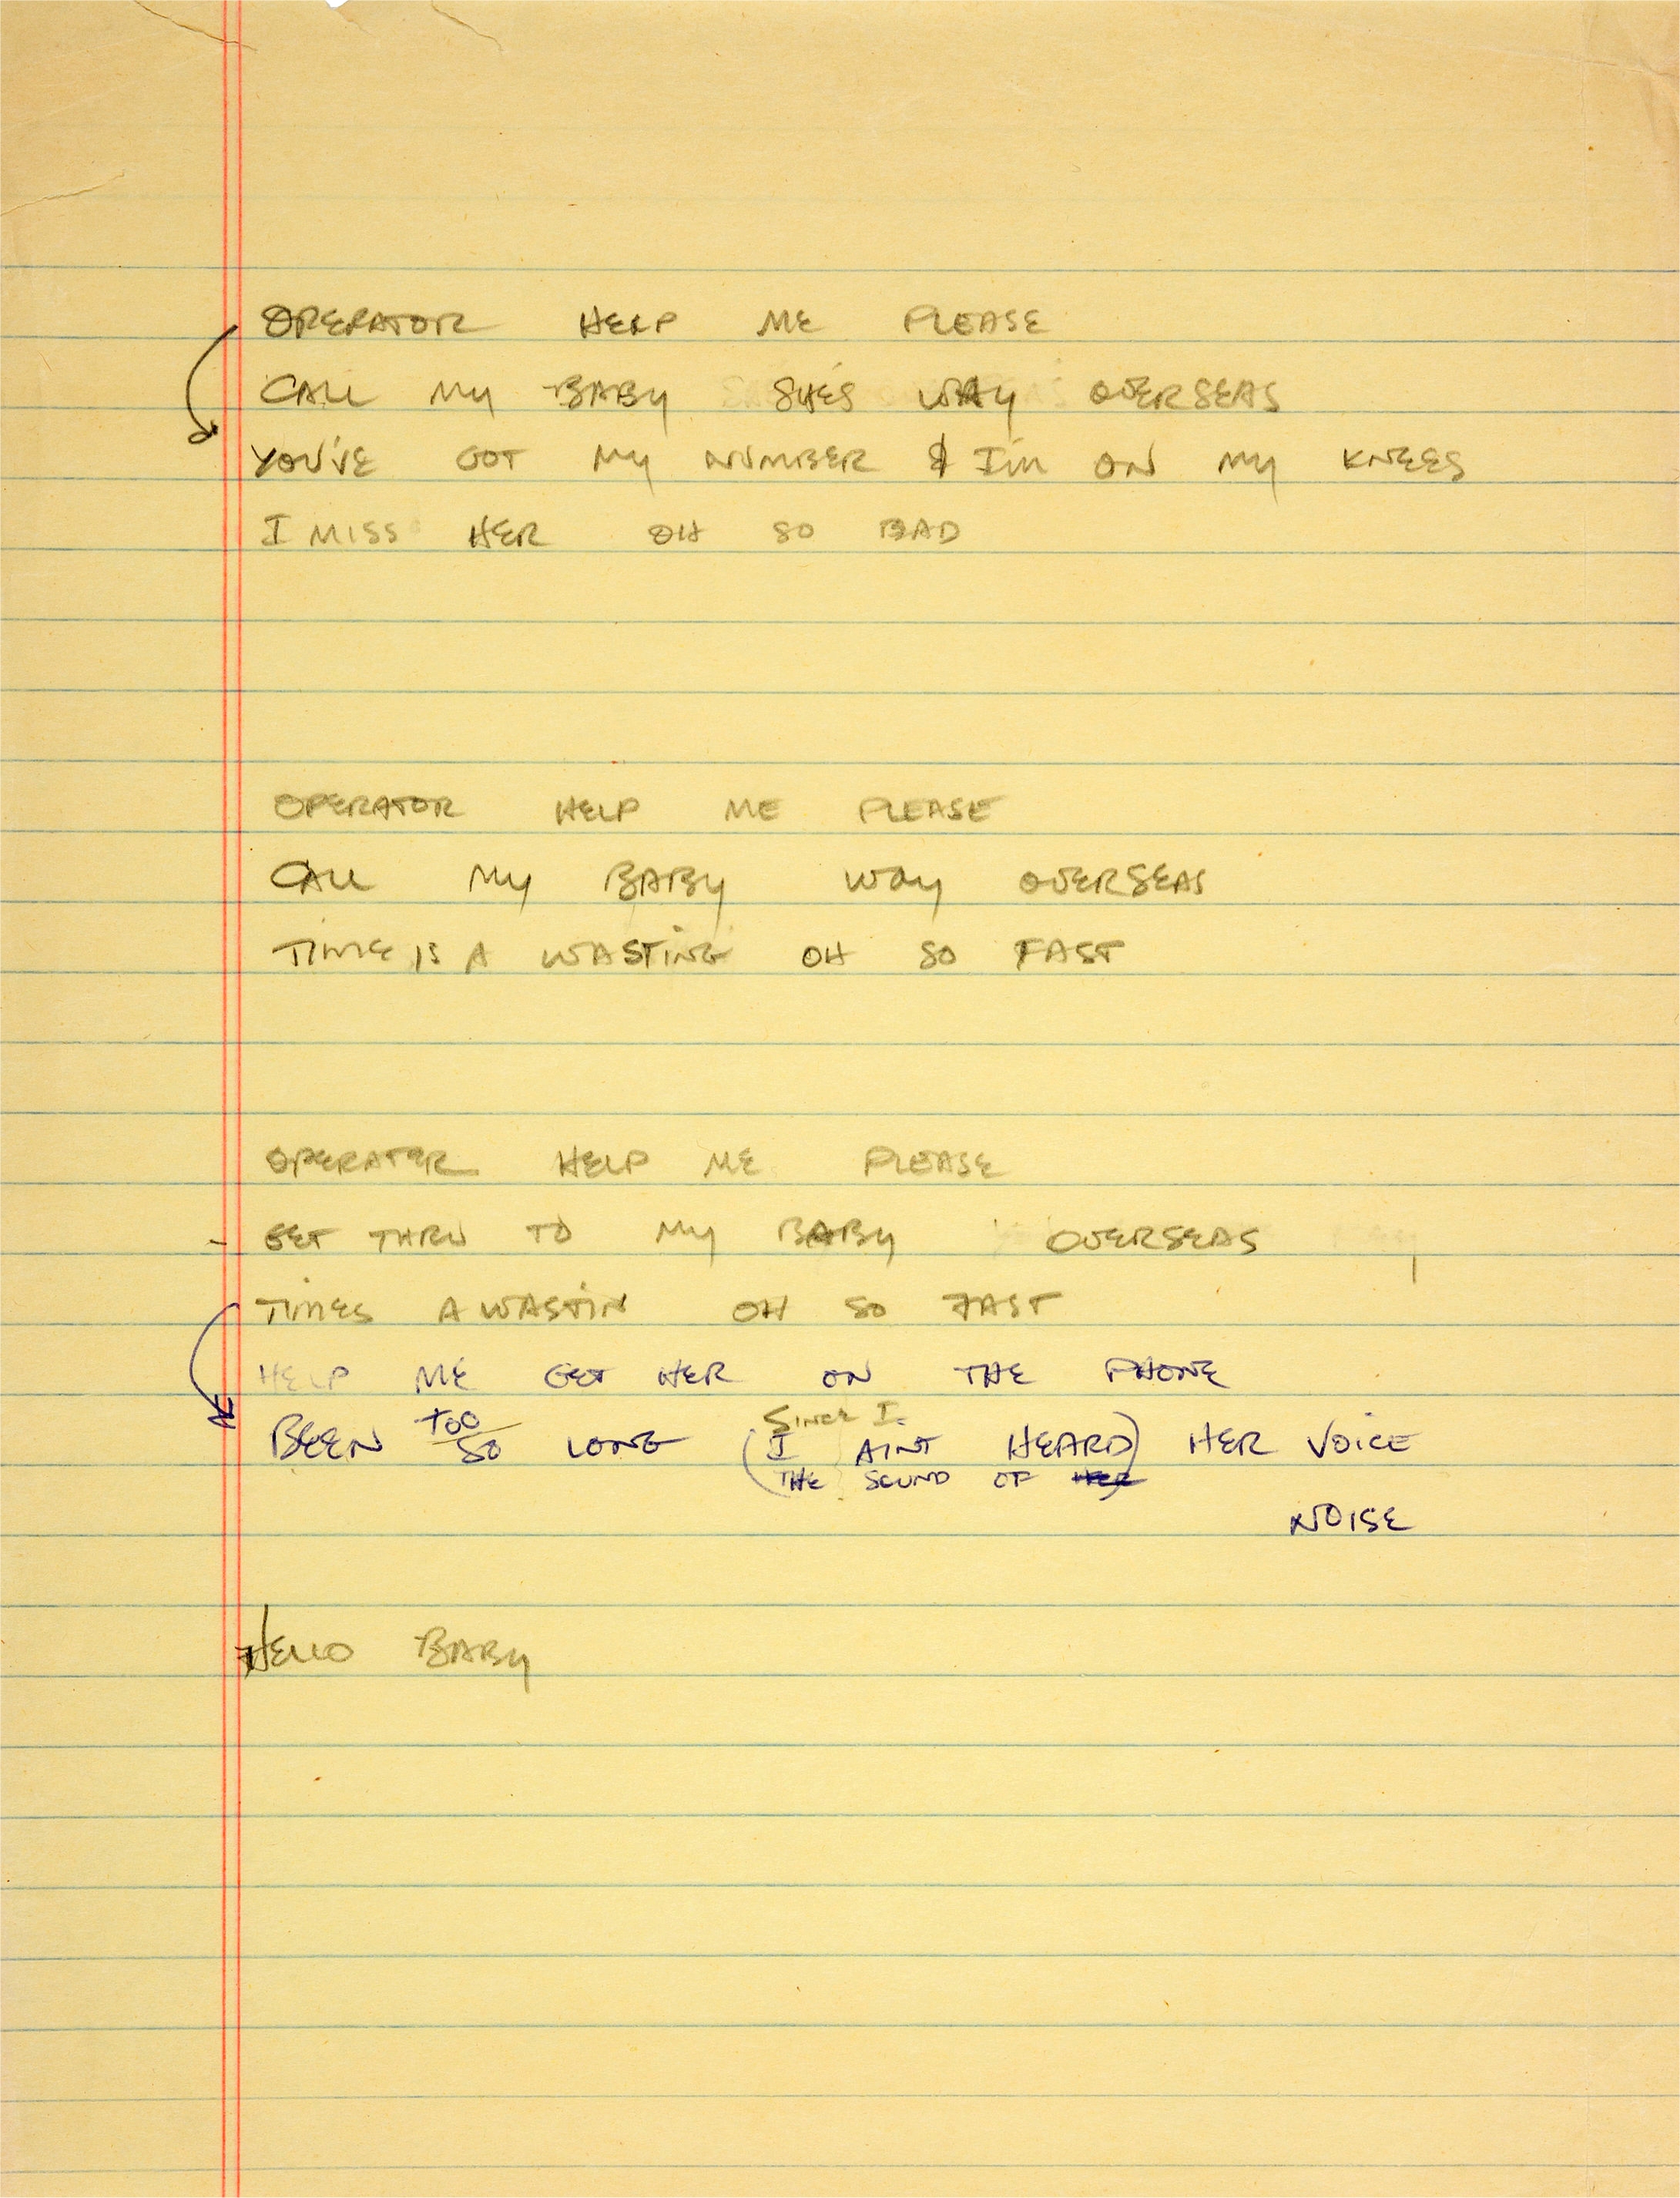 OPERATOR HELP ME PLEASE
CALL MY BABY SHE'S WAY OVERSEAS
YOU'VE GOT MY NUMBER & I'M ON MY KNEES
I MISS HER OH SO BAD
OPERATOR HELP ME PLEASE
CALL MY BABY WAY OVERSEAS
TIME IS A WASTING OH SO FAST
OPERATER HELP ME PLEASE
GET THRU TO MY BABY OVERSEAS
TIMES A WASTIN OH SO FAST
HELP ME GET HER ON THE PHONE
TOO SINCE I
BEEN SO LONG (I AINT HEARD) HER VOICE
(THE SOUND OF HER
NOISE
HELLO BABY